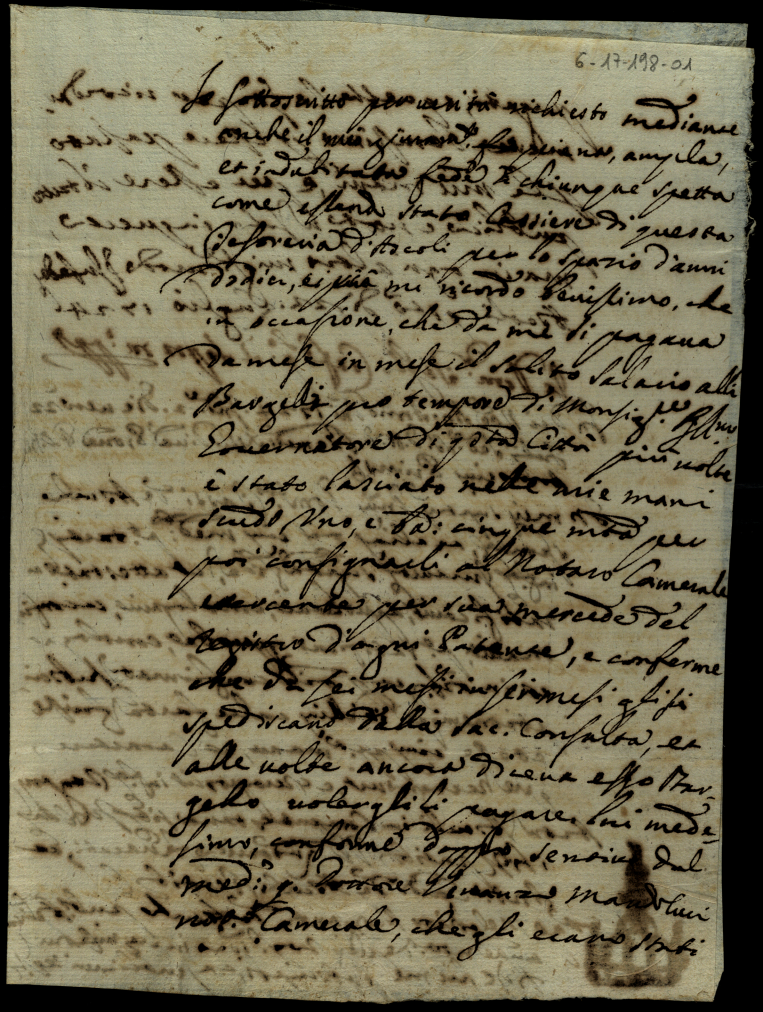 6-17-198-01
Io sottoscritto per verità richiesto mediante
anche il mio giuram.to fò piena, ampla,
et indubitata fede à chiunque spetta
come essend stato Cassiere di questa
Tesoreria d'Ascoli per lo spazio d'anni
dodici, e più mi ricordo benissimo, che
in occasione, che da me si pagava
da mese in mese il solito salario alli
Bargelli pro tempore di Monsig.re Ill.mo
Governatore di q.sta Città più volte
è stato lasciato nelle mie mani
scudo Uno, e ba: cinque m.ta per
poi consignarli al Notaro Camerale
esercente per sua mercede del
registro d'ogni Patente, e conforme
che da sei mesi in sei mesi gli si
spediscano dalla Sac. Consulta, et
alle volte ancora diceva esso Bar-
gello volerglili pagare lui mede-
simo, conforme doppo sentivo dal
med.o q. Dottore Venanzo Mandolini
not.o Camerale, che gli erano stati